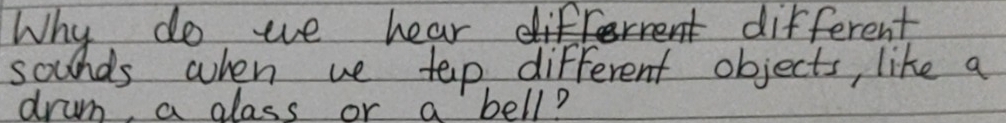 Why do we hear differrent different
sounds when we tap different objects, like a
drum, a glass or a bell?